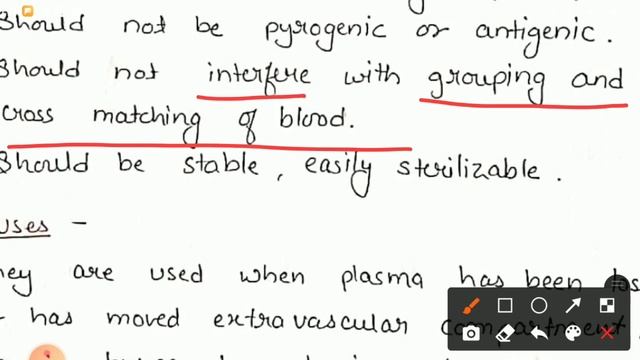 Should not be pyrogenic or antigenic.
Should not interfere with grouping and
cross matching of blood.
Should be stable, easily sterilizable.
uses -
hey are used when plasma has been los
has moved extravascular compartment